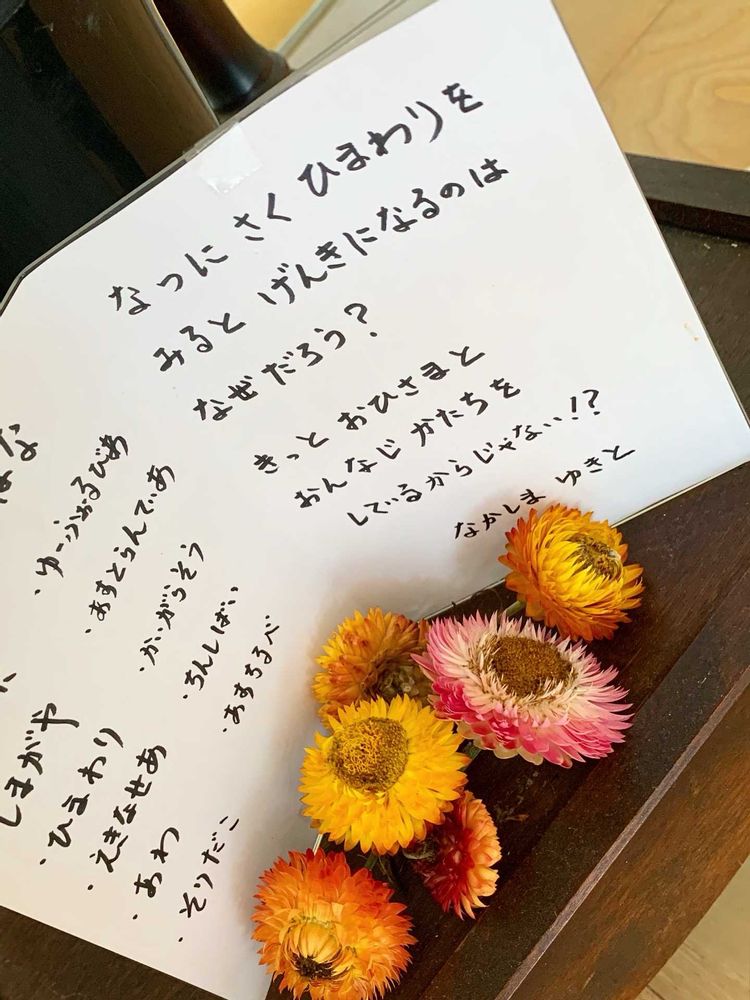 なつに さく ひまわりを
みると げんきになるのは
なぜ だろう?
きっと おひさまと
おんなじ かたちを
しているからじゃない!?
なかしま ゆきと
はな
・ゆーふぉるびあ
・あすとらんてぃあ
・かいがらそう
・ちんしばい
・あすちるべ
しまがや
・ひまわり
・えきなせあ
・あわ
・そりだこ